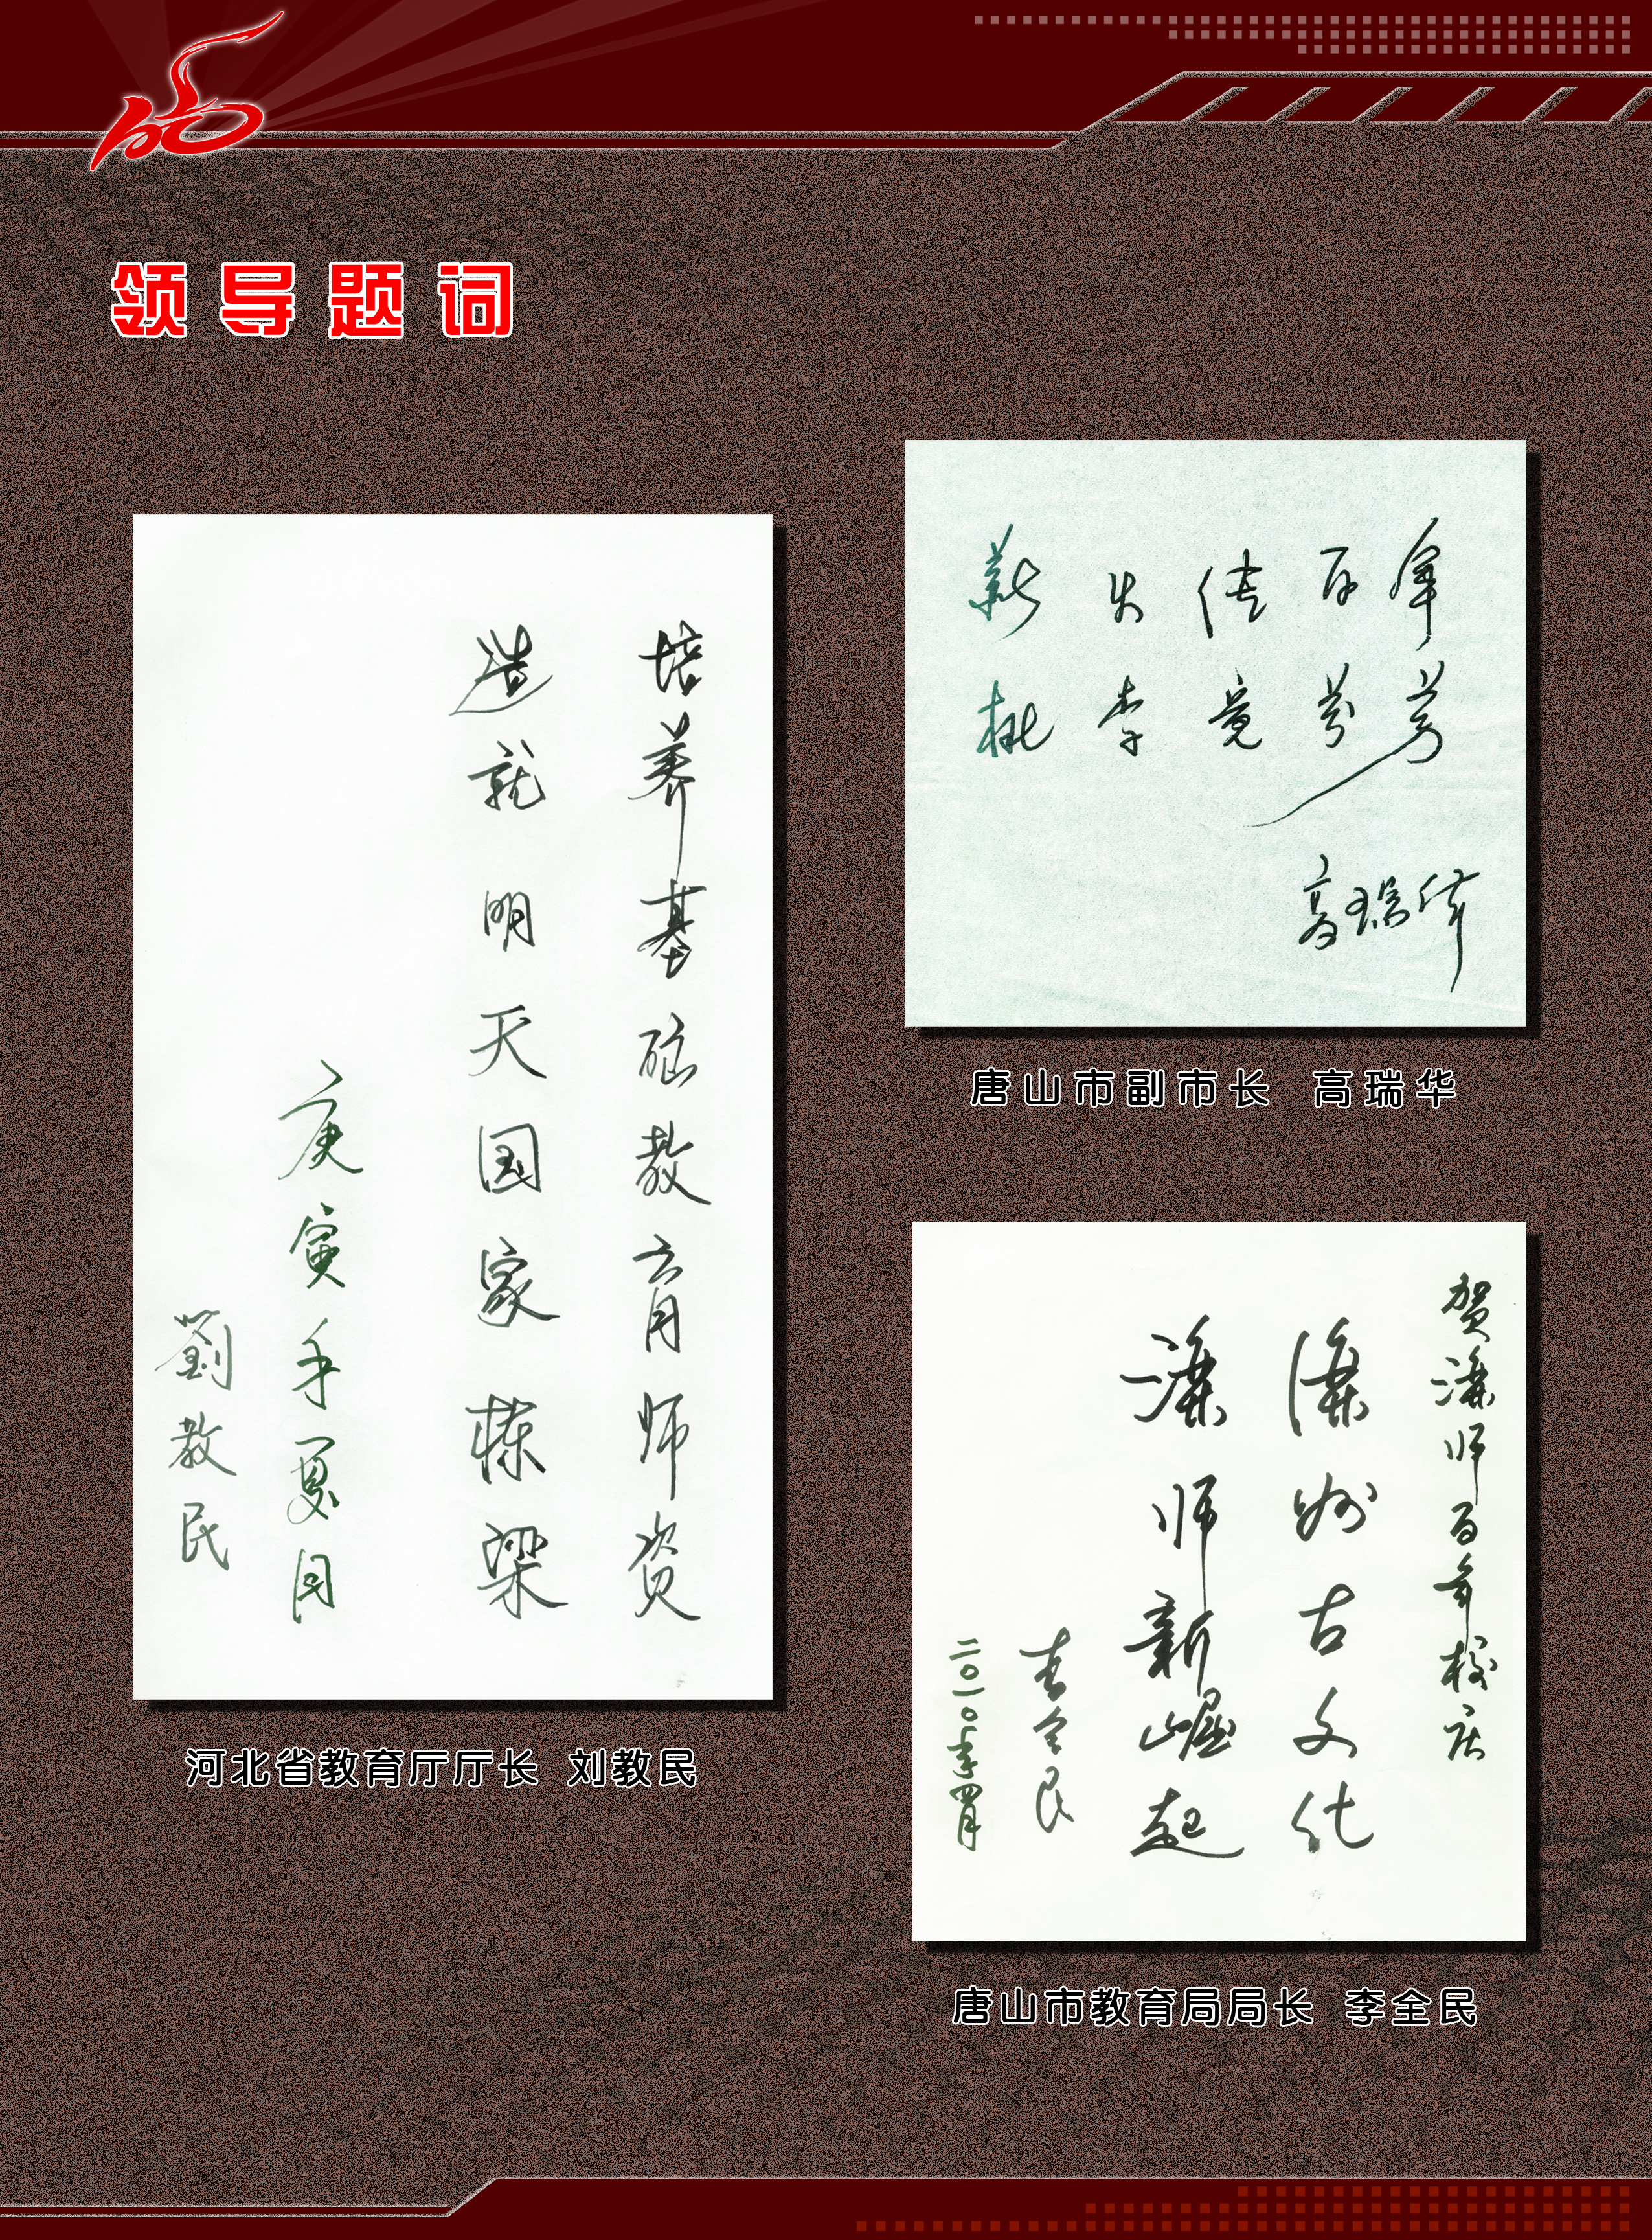 领导题词
培养基础教育师资
造就明天国家栋梁
庚寅年夏月
劉教民
河北省教育厅厅长 刘教民
薪火传百年
桃李竞芬芳
高瑞华
唐山市副市长 高瑞华
贺滦师百年校庆
滦州古文化
滦师新崛起
李全民
二〇一〇年四月
唐山市教育局局长 李全民